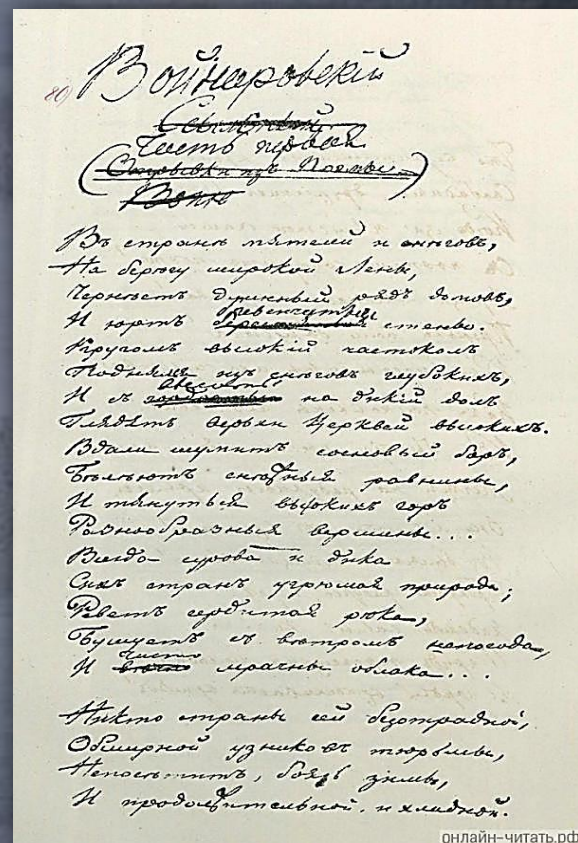 80
Войнаровскій
Ссыльный
Часть первая
(Отрывки изъ Поэмы
Войн
Въ странѣ мятелей и снѣговъ,
На берегу широкой Лены,
Чернѣетъ длинный рядъ домовъ,
И юртъ бревенчатыя стѣны.
Кругомъ высокій частоколъ
Поднялся изъ снѣговъ глубокихъ,
И съ высоты на дикій долъ
Глядятъ верьхи Церквей высокихъ.
Вдали шумитъ сосновый боръ,
Бѣлѣютъ снѣжныя равнины,
И тянутся высокихъ горъ
Разнообразныя вершины...
Всегда сурова и дика
Сихъ странъ угрюмая природа;
Реветъ сердитая рѣка,
Бушуетъ съ вѣтромъ непогода,
И часто мрачны облака...
Никто страны сей безотрадной,
Обширной узниковъ тюрьмы,
Непосѣтитъ, боясь зимы,
И продолжительной, и хладной.
онлайн-читать.рф